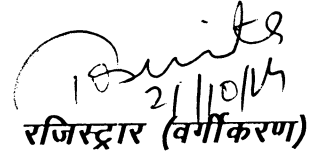 21/10/14
रजिस्ट्रार (वर्गीकरण)